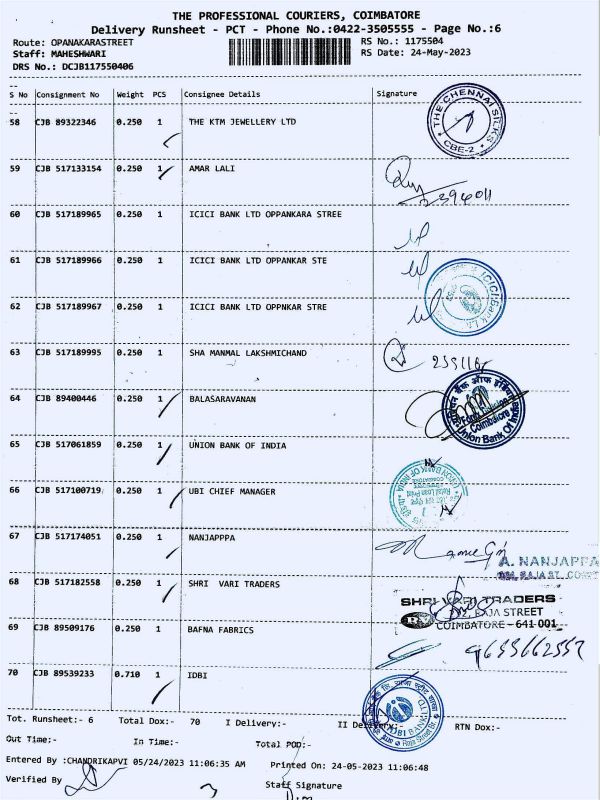 THE PROFESSIONAL COURIERS, COIMBATORE
Delivery Runsheet - PCT - Phone No.:0422-3505555 - Page No.:6
Route: OPANAKARASTREET RS No.: 1175504
Staff: MAHESHWARI RS Date: 24-May-2023
DRS No.: DCJB117550406
S No Consignment No Weight PCS Consignee Details Signature
58 CJB 89322346 0.250 1 THE KTM JEWELLERY LTD
THE CHENNAI SILKS
CBE-2
59 CJB 517133154 0.250 1 AMAR LALI
60 CJB 517189965 0.250 1 ICICI BANK LTD OPPANKARA STREE
61 CJB 517189966 0.250 1 ICICI BANK LTD OPPANKAR STE
62 CJB 517189967 0.250 1 ICICI BANK LTD OPPNKAR STRE
ICICI Bank
63 CJB 517189995 0.250 1 SHA MANMAL LAKSHMICHAND
64 CJB 89400446 0.250 1 BALASARAVANAN
Coimbatore
Union Bank Of India
65 CJB 517061859 0.250 1 UNION BANK OF INDIA
66 CJB 517100719 0.250 1 UBI CHIEF MANAGER
UNION BANK OF INDIA
67 CJB 517174051 0.250 1 NANJAPPPA
A. NANJAPPA
68 CJB 517182558 0.250 1 SHRI VARI TRADERS
SHRI VARI TRADERS
RAJA STREET
COIMBATORE - 641 001
69 CJB 89509176 0.250 1 BAFNA FABRICS
9655662552
70 CJB 89539233 0.710 1 IDBI
IDBI BANK LTD
Raja Street
Tot. Runsheet:- 6 Total Dox:- 70 I Delivery:- II Delivery:- RTN Dox:-
Out Time:- In Time:- Total POD:-
Entered By :CHANDRIKAPVI 05/24/2023 11:06:35 AM Printed On: 24-05-2023 11:06:48
Verified By Staff Signature